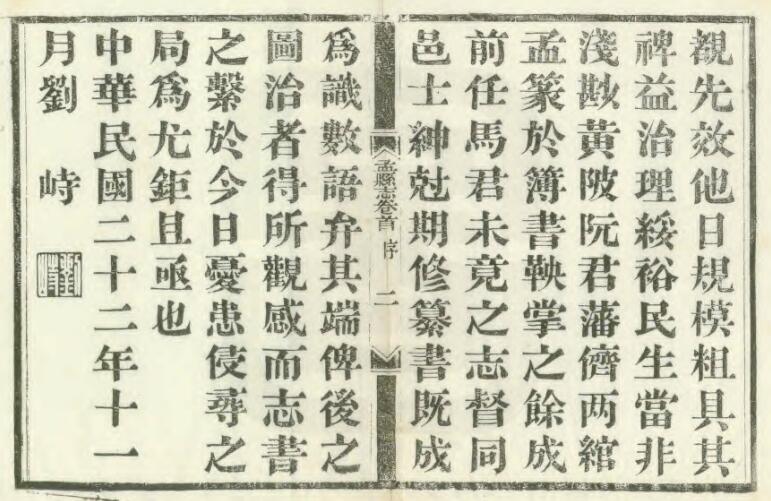 覩先效他日規模粗具其
裨益治理綏裕民生當非
淺尠黃陂阮君藩儕两綰
孟篆於簿書鞅掌之餘成
前任馬君未竟之志督同
邑士紳尅期修纂書既成
孟縣志卷首 序 二
爲識數語弁其端俾後之
圖治者得所觀感而志書
之繫於今日憂患侵尋之
局爲尤鉅且亟也
中華民國二十二年十一
月劉峙
劉峙